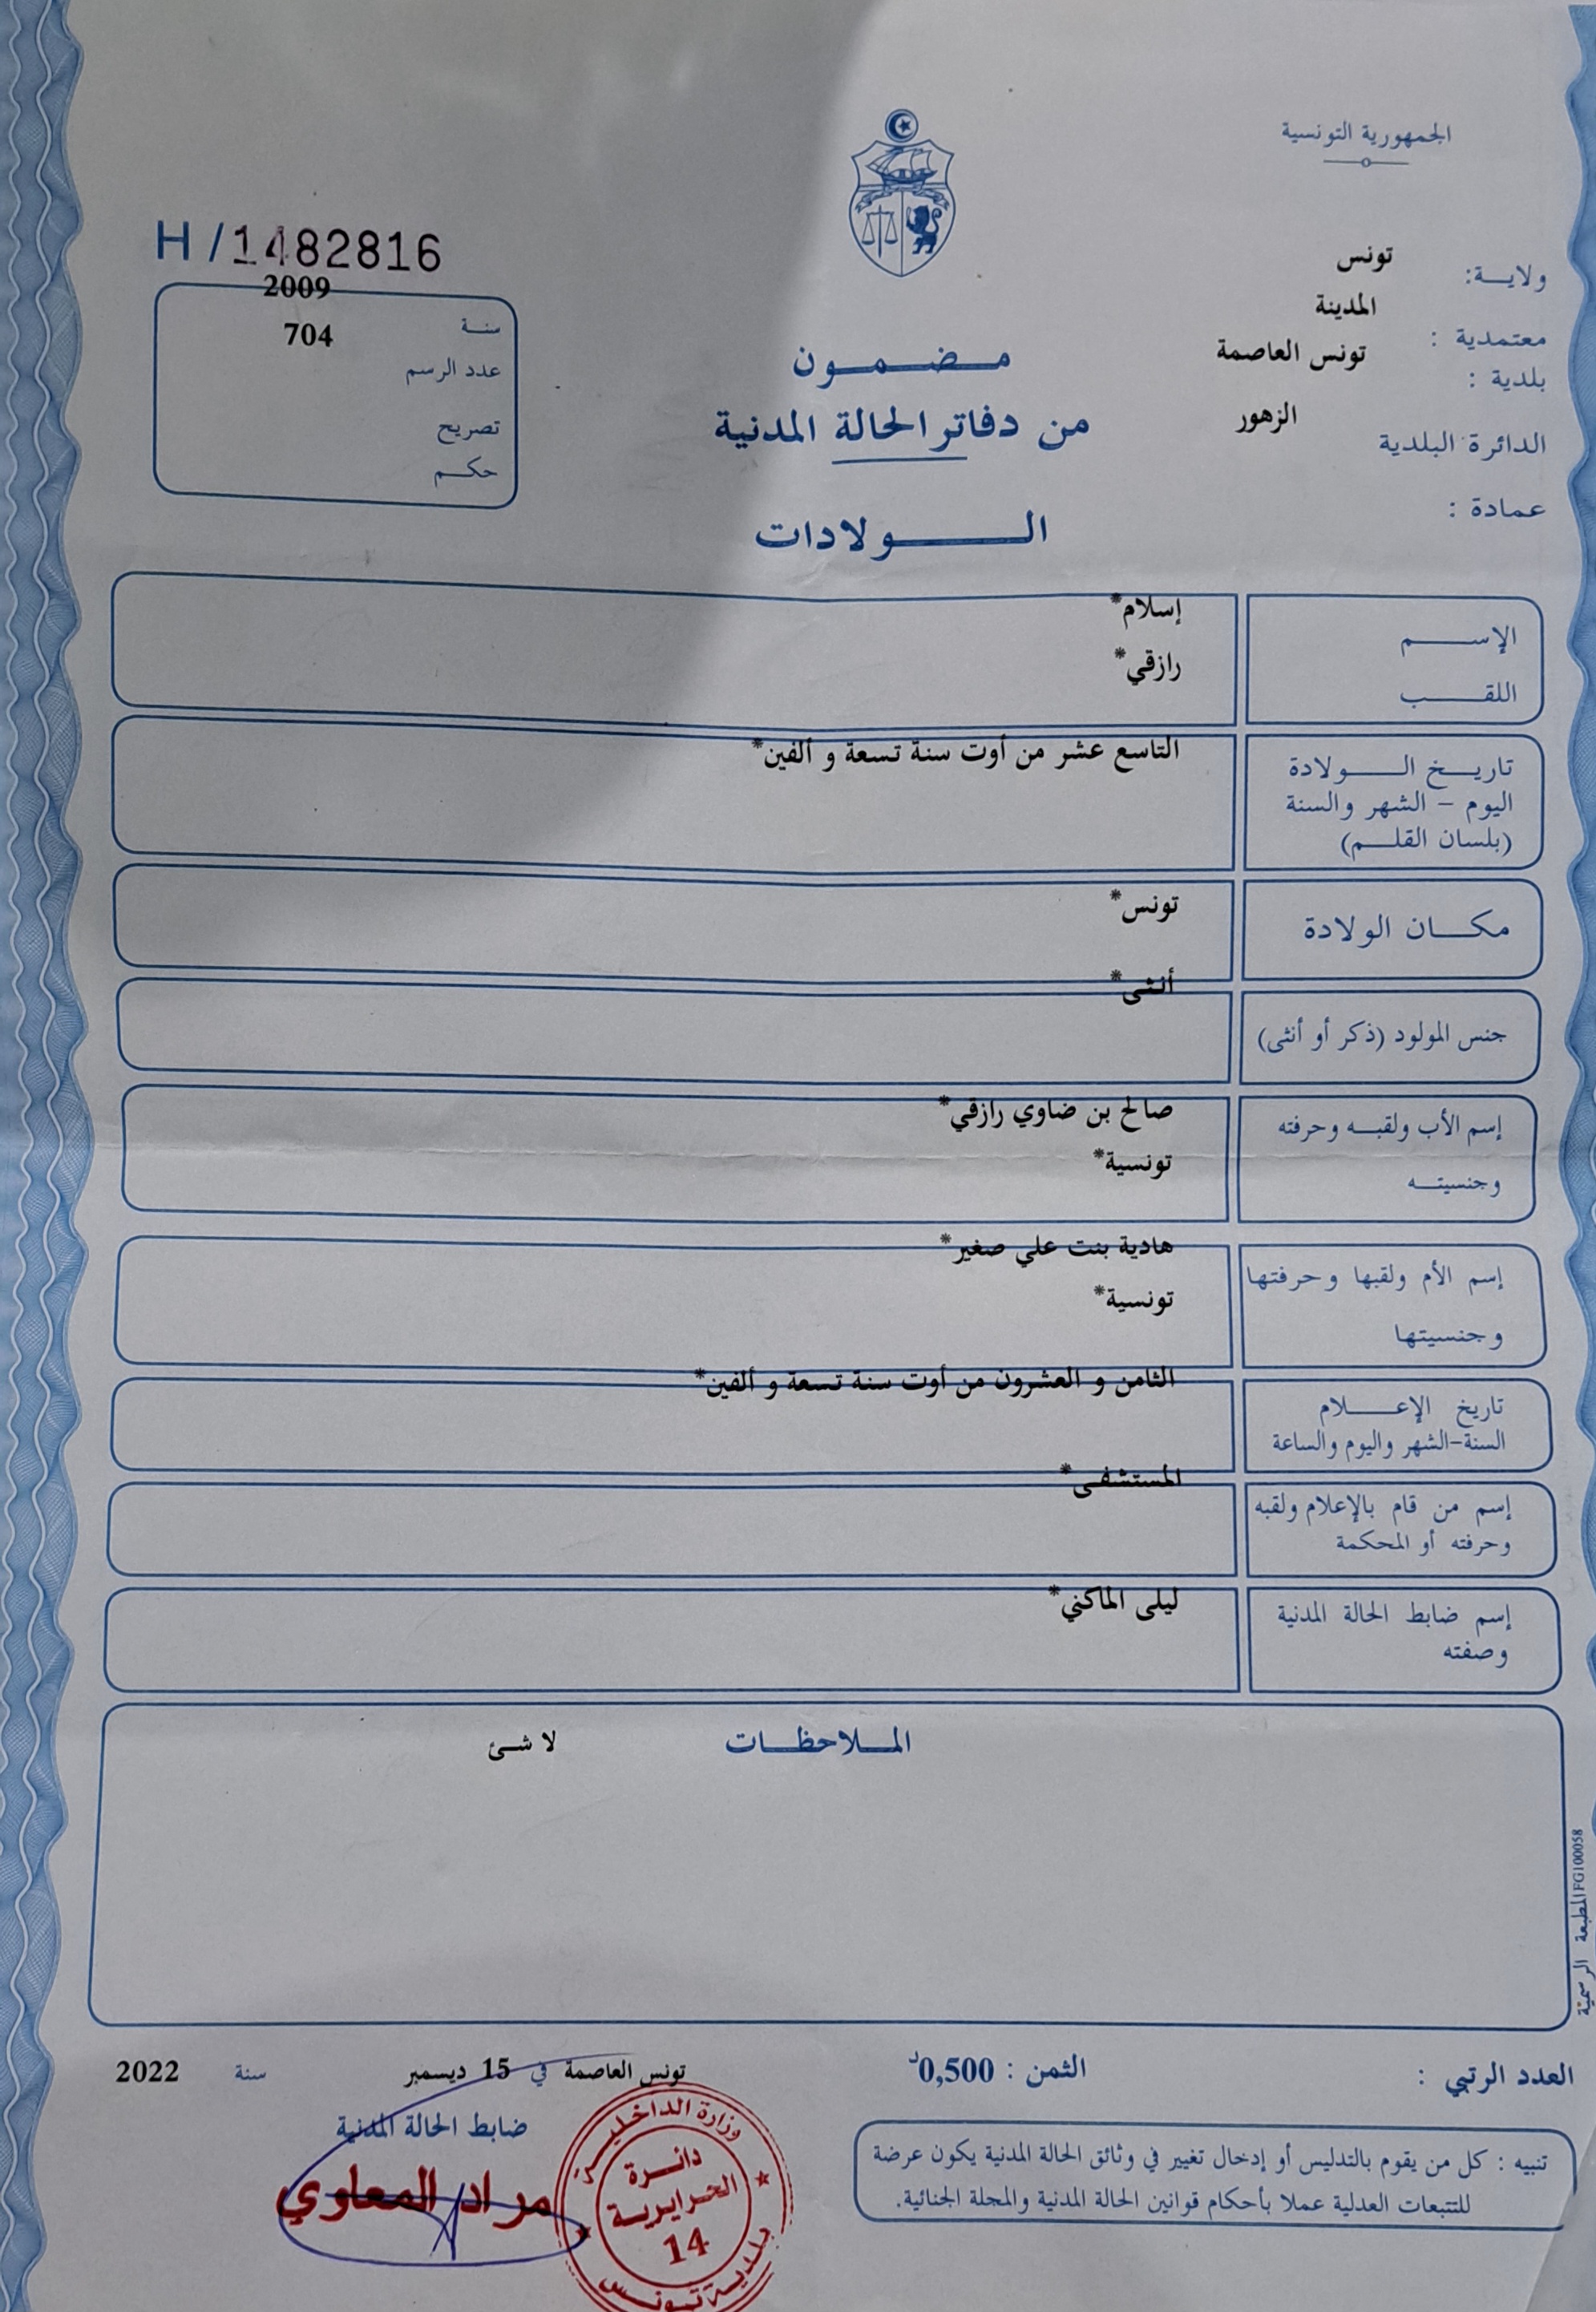 الجمهورية التونسية
ولاية: تونس
معتمدية : المدينة
بلدية : تونس العاصمة
الدائرة البلدية الزهور
عمادة :
مضمون
من دفاتر الحالة المدنية
الولادات
H /1482816
سنة 2009
عدد الرسم 704
تصريح
حكم
الإسم إسلام*
اللقب رازقي*
تاريخ الولادة التاسع عشر من أوت سنة تسعة و ألفين*
اليوم – الشهر والسنة
(بلسان القلم)
مكان الولادة تونس*
جنس المولود (ذكر أو أنثى) أنثى*
إسم الأب ولقبه وحرفته صالح بن ضاوي رازقي*
وجنسيته تونسية*
إسم الأم ولقبها وحرفتها هادية بنت علي صغير*
وجنسيتها تونسية*
تاريخ الإعلام الثامن و العشرون من أوت سنة تسعة و ألفين*
السنة-الشهر واليوم والساعة
إسم من قام بالإعلام ولقبه المستشفى*
وحرفته أو المحكمة
إسم ضابط الحالة المدنية ليلى الماكني*
وصفته
الملاحظات لا شئ
المطبعة الرسميّة FG100058
العدد الرتبي :
الثمن : 0,500د
تونس العاصمة في 15 ديسمبر سنة 2022
ضابط الحالة المدنية
مراد المعاوي
وزارة الداخلية
دائرة
الحرايرية
14
بلدية تونس
تنبيه : كل من يقوم بالتدليس أو إدخال تغيير في وثائق الحالة المدنية يكون عرضة
للتتبعات العدلية عملا بأحكام قوانين الحالة المدنية والمجلة الجنائية.